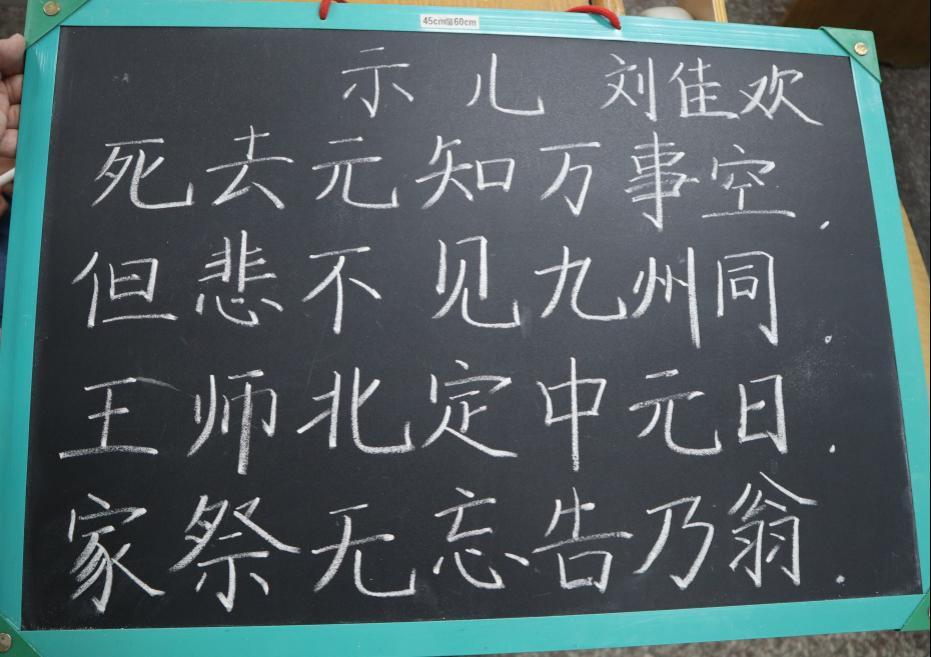 45cm×60cm
示儿 刘佳欢
死去元知万事空.
但悲不见九州同.
王师北定中元日.
家祭无忘告乃翁.